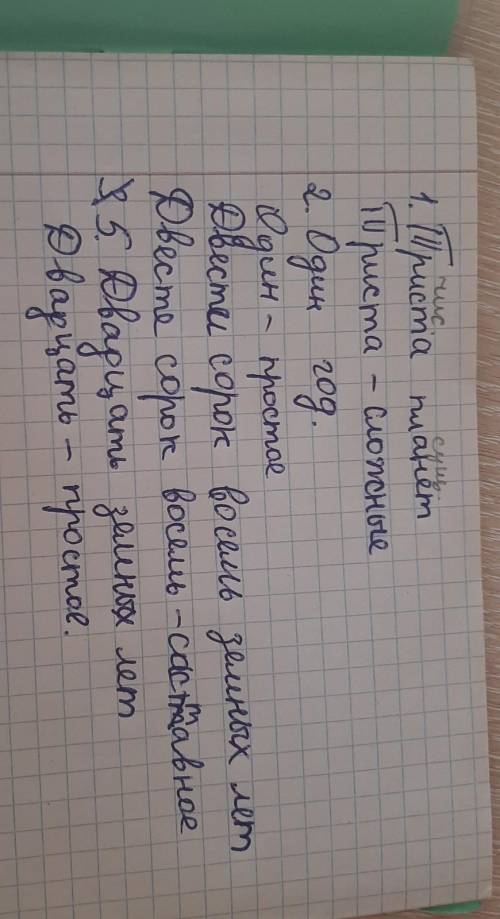 числ. сущ.
1. Триста планет
Триста - сложные
2. Один год.
Один - простое
Двести сорок восемь земных лет
Двести сорок восемь - составное
5. Двадцать земных лет
Двадцать - простое.